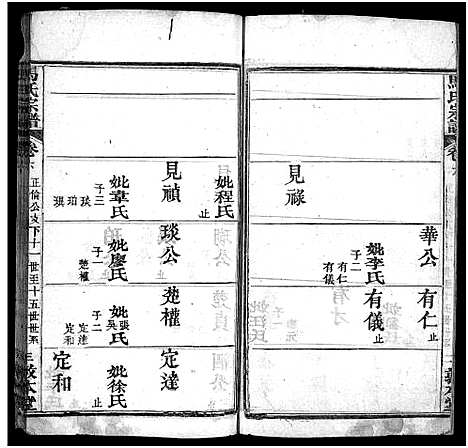 馬氏宗譜
卷六
華公
妣李氏
子二
有仁
有儀
有仁
止
有儀
止
見祿
止
妣程氏
止
見禎
妣覃氏
子三
琰
珀
琪
琰公
妣廖氏
子一
楚權
楚權
妣張氏
吳
子二
定達
定和
定達
妣徐氏
止
定和
馬氏宗譜
卷六
正倫公支下十一世至十五世世系
三
敦本堂